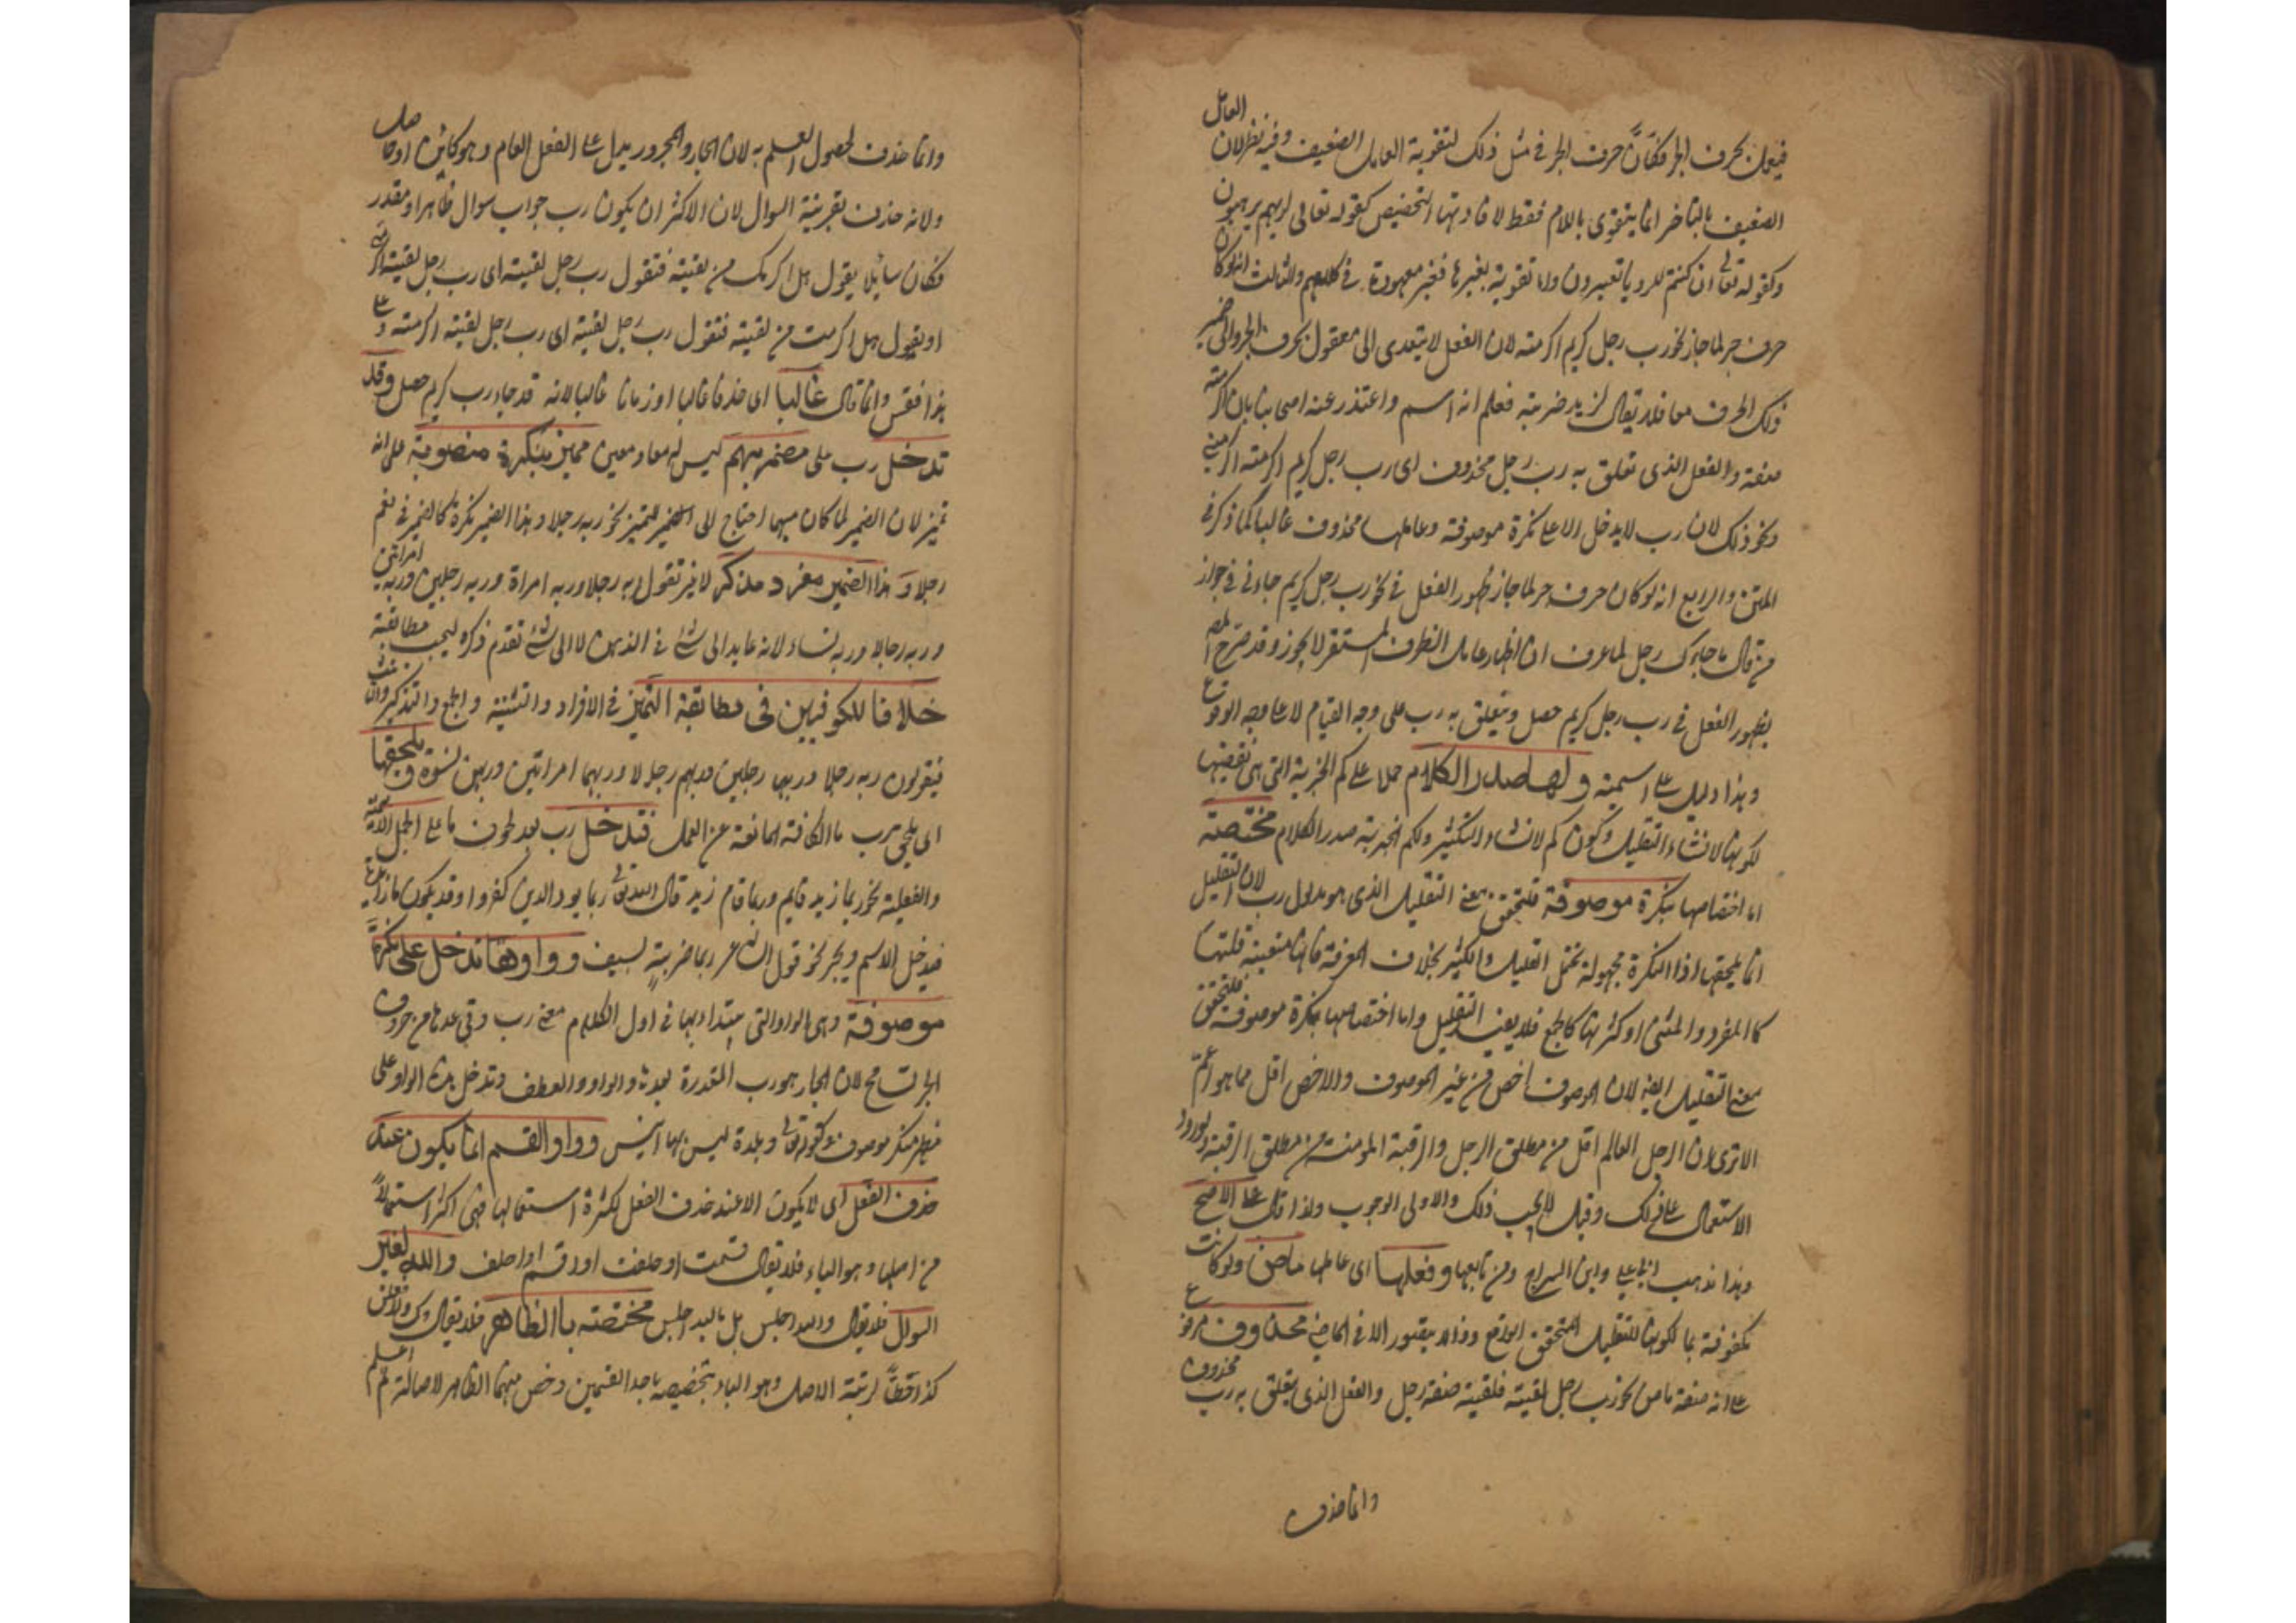 فيعمل بحرف الجر فكأنّ حرف الجر في مثل ذلك لتقوية العامل الضعيف وفيه نظر لان العامل
الضعيف بالتاخر انما يتقوى باللام فقط لافادتها التخصيص كقوله تعالى لربهم يرهبون
وكقوله تعالى ان كنتم للرويا تعبرون واما تقوية بغيرها فغير معهودة في كلامهم والثالث انه لو كان
حرف جر لما جاز نحو رب رجل كريم اكرمته لان الفعل لا يتعدى الى مفعول بحرف الجر والى ضمير
ذلك الحرف معا فلا يقال لزيد ضربته فعلم انه اسم واعتذر عنه اصحابنا بان اكرمته
صفة والفعل الذي تعلق به رب رجل محذوف اى رب رجل كريم اكرمته اكرمني
ونحو ذلك لان رب لا يدخل الا على نكرة موصوفة وعاملها محذوف غالبا كما ذكر في
المتن والرابع انه لو كان حرف جر لما جاز ظهور الفعل في نحو رب رجل كريم جاءني في جواز
من قال ما جاءك رجل لما عرف ان اظهار عامل الظرف المستقر لا يجوز وقد صرح المص
بظهور الفعل في رب رجل كريم حصل ويتعلق به رب على وجه القيام لا على وجه الوقوع
وهذا دليل على اسميته ولها صدر الكلام حملا على كم الخبرية التي هي نقيضها
لكونها لانشاء التقليل وكون كم لانشاء التكثير ولكم الخبرية صدر الكلام مختصة
اما اختصاصها بنكرة موصوفة فلتحقق معنى التقليل الذي هو مدلول رب لان التقليل
انما يلحقها اذ النكرة مجهولة تحتمل القليل والكثير بخلاف المعرفة فانها متعينة قلتها
كالمفرد والمثنى او كثرتها كالجمع فلا يفيد التقليل واما اختصاصها بنكرة موصوفة فلتحقق
معنى التقليل ايضا لان الموصوف اخص من غير الموصوف والاخص اقل مما هو اعم
الا ترى ان الرجل العالم اقل من مطلق الرجل والرقبة المومنة من مطلق الرقبة ولورود
الاستعمال على ذلك وقيل لا يجب ذلك والاولى الوجوب ولذا قال على الاصح
وهذا مذهب ابي علي وابن السراج ومن تابعها وفعلها اى عاملها ماض ولو كانت
مكفوفة بما لكونها للتقليل المتحقق الواقع وذا لا يتصور الا في الماضي محذوف مرفوع
على انه صفة ماض نحو رب رجل لقيته فلقيته صفة رجل والفعل الذي يتعلق به رب محذوف
وانما حذف
وانما حذف لحصول العلم به لان الجار والمجرور يدل على الفعل العام وهو كائن او حاصل
ولانه حذف بقرينة السوال لان الاكثر ان يكون رب جواب سوال ظاهر او مقدر
فكان سائلا يقول هل اكرمك من لقيته فتقول رب رجل لقيته اى رب رجل لقيته اكرمني
او يقول هل اكرمت من لقيته فتقول رب رجل لقيته اى رب رجل لقيته اكرمته وعلى
هذا فقس وانما قال غالبا اى حذفا غالبا او زمانا غالبا لانه قد جاء رب كريم حصل وقد
تدخل رب على مضمر مبهم ليس له معاد معين مميز بنكرة منصوبة على انه
تميز لان الضمير لما كان مبهما احتاج الى التميز نحو ربه رجلا وهذا الضمير نكرة كالضمير في نعم
رجلا وهذا الضمير مفرد مذكر لا غير تقول ربه رجلا وربه امراة وربه رجلين وربه امراتين
وربه رجالا وربه نساء لانه عايد الى شئ في الذهن لا الى شئ تقدم ذكره ليجب مطابقته
خلافا للكوفيين في مطابقة التميز في الافراد والتثنية والجمع والتذكير والتانيث
فيقولون ربه رجلا وربهما رجلين وربهم رجالا وربهما امراتين وربهن نسوة وتلحقها
اى يلحق برب ما الكافة المانعة عن العمل فتدخل رب بعد لحوق ما على الجمل الاسمية
والفعلية نحو ربما زيد قايم وربما قام زيد قال الله تعالى ربما يود الذين كفروا وقد يكون ما زايدة
فيدخل الاسم ويجر نحو قول الشاعر ربما ضربةٍ بسيف وواوها تدخل على نكرة
موصوفة وهي الواو التي يبتداء بها في اول الكلام بمعنى رب وفي عدها من حروف
الجر تسامح لان الجار هو رب المقدرة بعدها والواو للعطف وتدخل هذه الواو على
مظهر منكر موصوف كقوله تعالى وبلدة ليس بها انيس وواو القسم انما يكون عند
حذف الفعل اى لا يكون الا عند حذف الفعل لكثرة استعمالها فهي اكثر استعمالا
من اصلها وهو الباء فلا يقال قسمت او حلفت او اقسم او احلف والله لغير
السوال فلا يقال والله اجلس بل بالله اجلس مختصة باالظاهر فلا يقال وك ولافعلن
كذا حطّاً لرتبة الاصل وهو الباء بتخصيصه باحد القسمين وخص منهما الظاهر لاصالته ثم اعلم